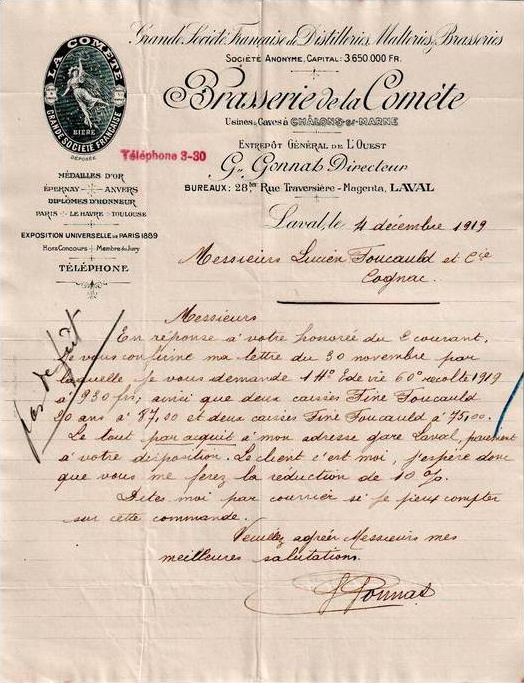 Grande Société Française de Distilleries, Malteries, Brasseries
Société Anonyme, Capital: 3.650.000 Fr.
Brasserie de la Comète
Usines & Caves à CHÂLONS-s/-MARNE
Entrepôt Général de L'Ouest
Gn. Gonnat, Directeur
Bureaux: 28bis Rue Traversière - Magenta, LAVAL
LA COMÈTE
BIÈRE
GRANDE SOCIÉTÉ FRANÇAISE
DÉPOSÉE
Téléphone 3-30
MÉDAILLES D'OR
ÉPERNAY ANVERS
DIPLÔMES D'HONNEUR
PARIS - LE HAVRE - TOULOUSE
EXPOSITION UNIVERSELLE DE PARIS 1889
Hors Concours Membre du Jury
TÉLÉPHONE
Laval, le 4 décembre 1919
Messieurs Lucien Foucauld et Cie
Cognac.
Messieurs
En réponse à votre honorée du 2 courant,
Je vous confirme ma lettre du 30 novembre par
laquelle, je vous demande 1 Ho E de vie 60° recolte 1919
à 930 frs, ainsi que deux caisses Fine Foucauld
20 ans à 87,00 et deux caisses Fine Foucauld à 75,00.
Le tout par acquit à mon adresse gare Laval, paiement
à votre disposition. Le client c'est moi, j'espère donc
que vous me ferez la réduction de 10 %.
Dites moi par courrier si je peux compter
sur cette commande.
Veuillez agréer Messieurs mes
meilleures salutations.
G Gonnat
pas de fût